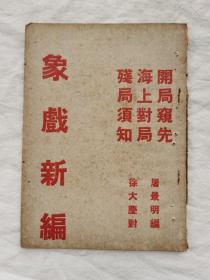 開局窺先
海上對局
殘局須知
屠景明編
徐大慶對
象戲新編